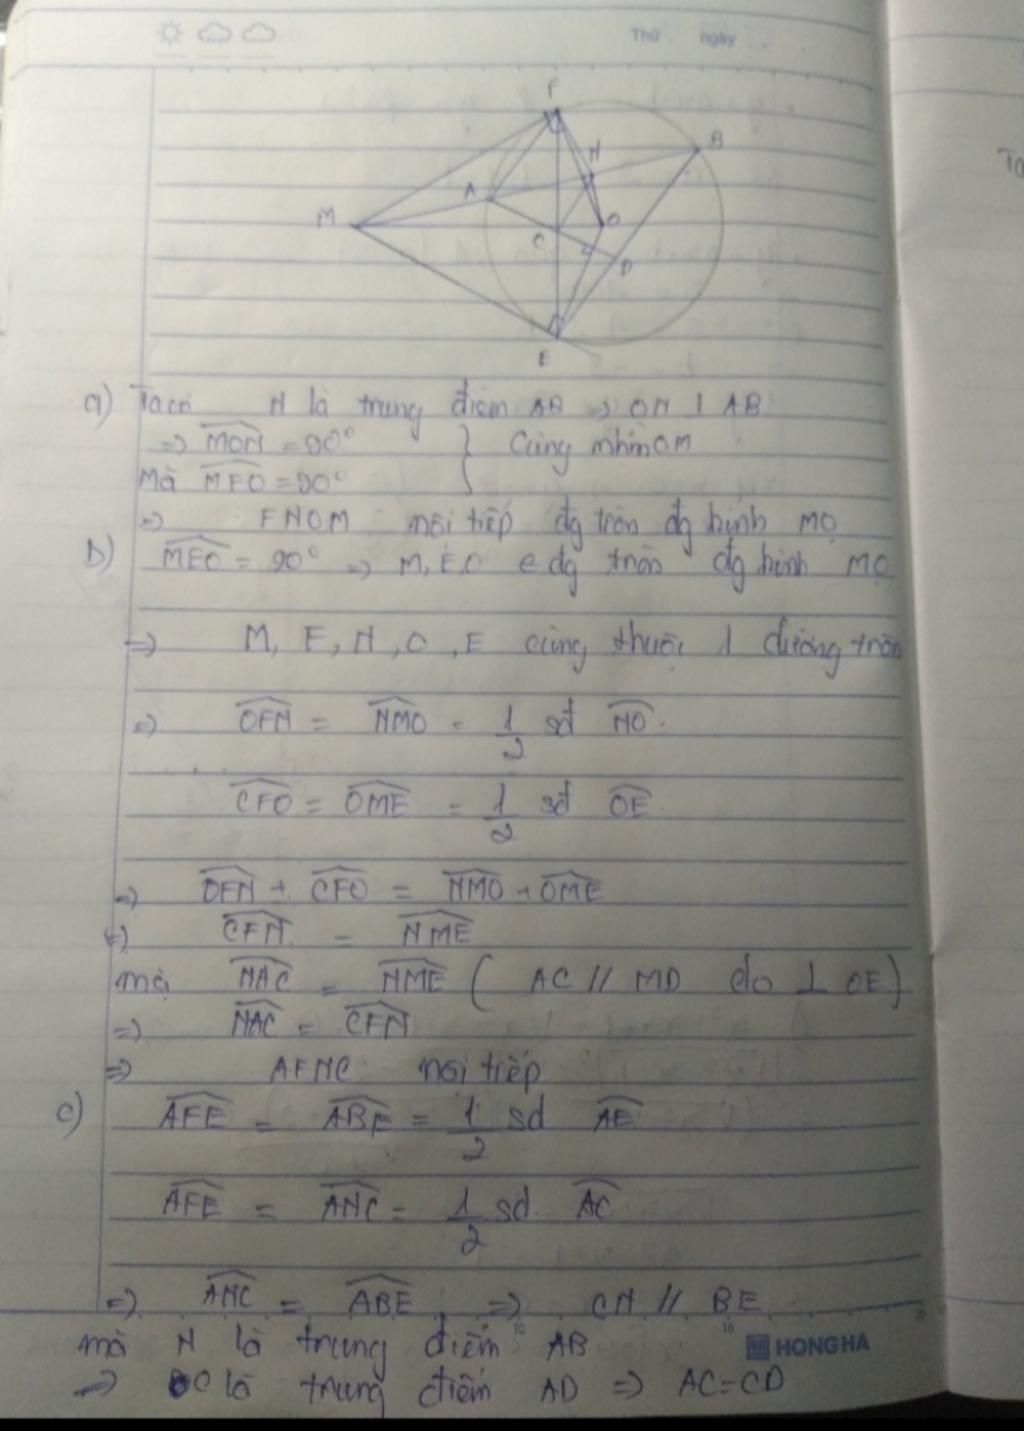 Thứ ngày
F
N
B
A
M
O
C
D
E
a) Ta có N là trung điểm AB => ON ⊥ AB
=> MON = 90° } Cùng nhìn OM
Mà MFO = 90°
=> FNOM nội tiếp đg tròn đg kính MO
b) MEO = 90° => M, E, O e đg tròn đg kính MO
=> M, F, N, O, E cùng thuộc 1 đường tròn
=> OFN = NMO = 1/2 sđ NO.
CFO = OME = 1/2 sđ OE
=> OFN + CFO = NMO + OME
=> CFN = NME
mà NAC = NME ( AC // MD do ⊥ OE )
=> NAC = CFN
=> AFNC nội tiếp
c) AFE = ABE = 1/2 sđ AE
AFE = ANC = 1/2 sđ AC
=> ANC = ABE => CN // BE
mà N là trung điểm AB
HONG HA
=> C là trung điểm AD => AC = CD